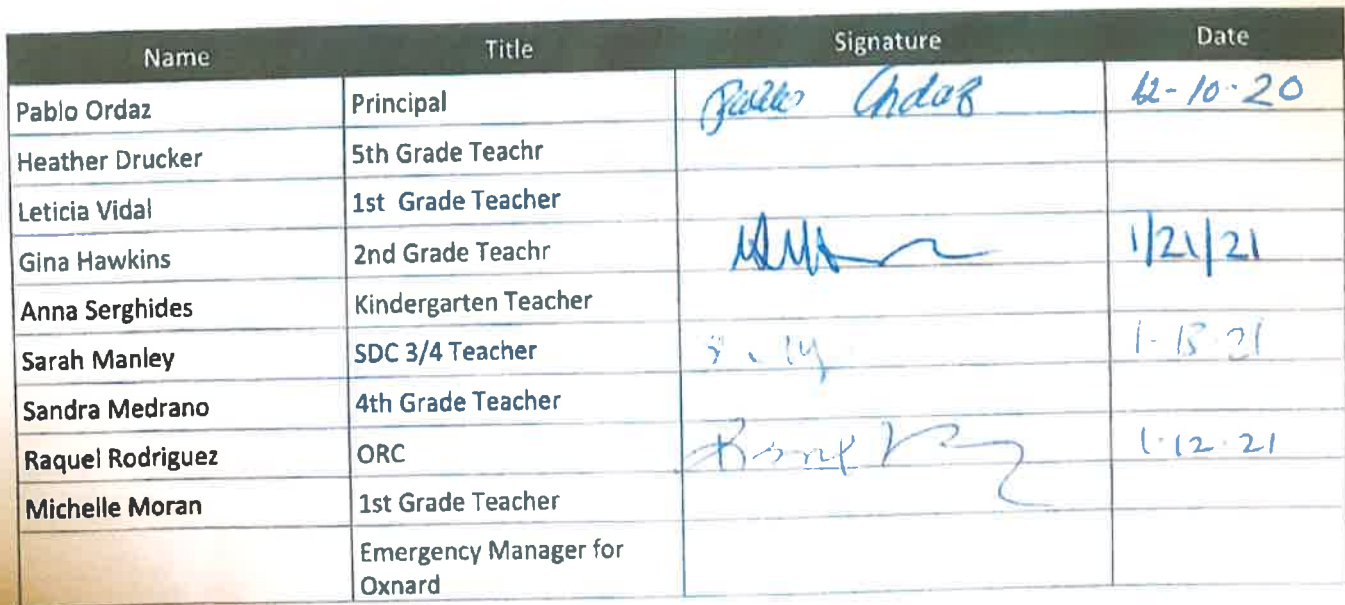 Name Title Signature Date
Pablo Ordaz Principal Pablo Ordaz 12-10-20
Heather Drucker 5th Grade Teachr
Leticia Vidal 1st Grade Teacher
Gina Hawkins 2nd Grade Teachr 1/21/21
Anna Serghides Kindergarten Teacher
Sarah Manley SDC 3/4 Teacher 1-15-21
Sandra Medrano 4th Grade Teacher
Raquel Rodriguez ORC 1-12-21
Michelle Moran 1st Grade Teacher
Emergency Manager for
Oxnard